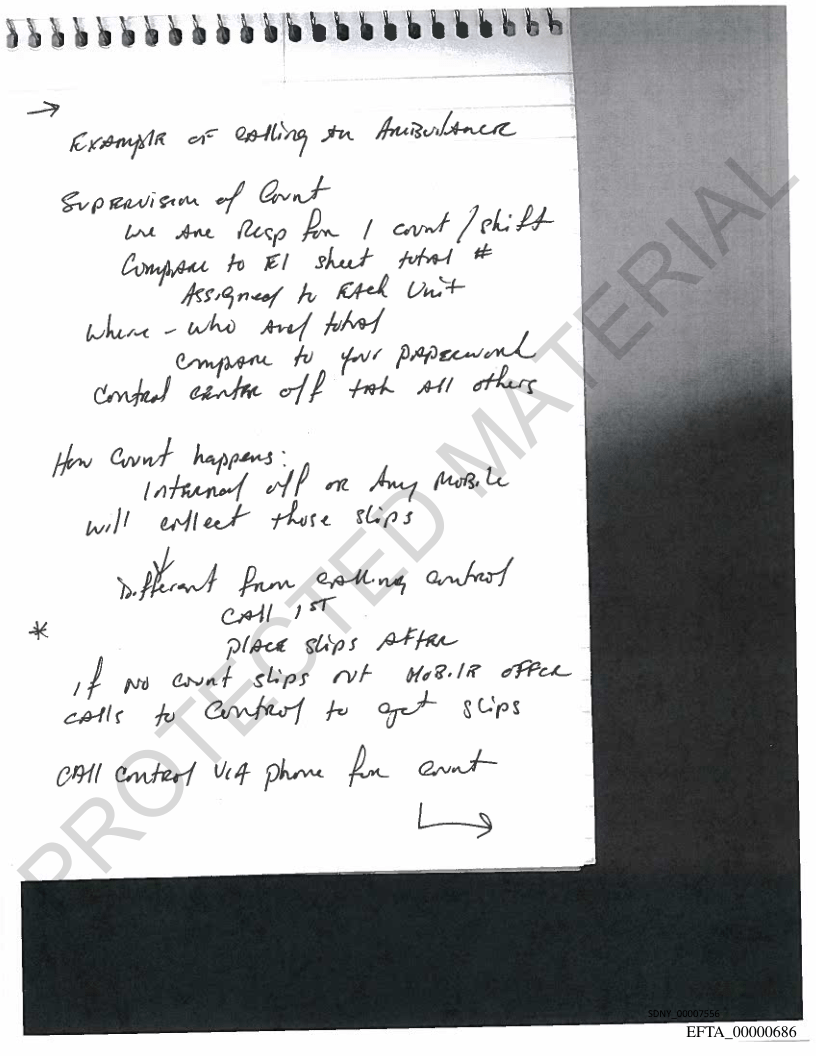 →
Example of calling an Ambulance
Supervision of Count
we are Resp for 1 count / shift
Compare to E1 sheet total #
Assigned to Each Unit
Where - who and total
compare to your paperwork
Control center off tak all others
How Count happens:
Internal off or Any Mobile
will collect those slips
Different from calling control
CAll 1ST
* place slips after
if no count slips out Mobile officer
calls to Control to get slips
CAll Control VIA phone for count
PROTECTED MATERIAL
SDNY_00007556
EFTA_00000686